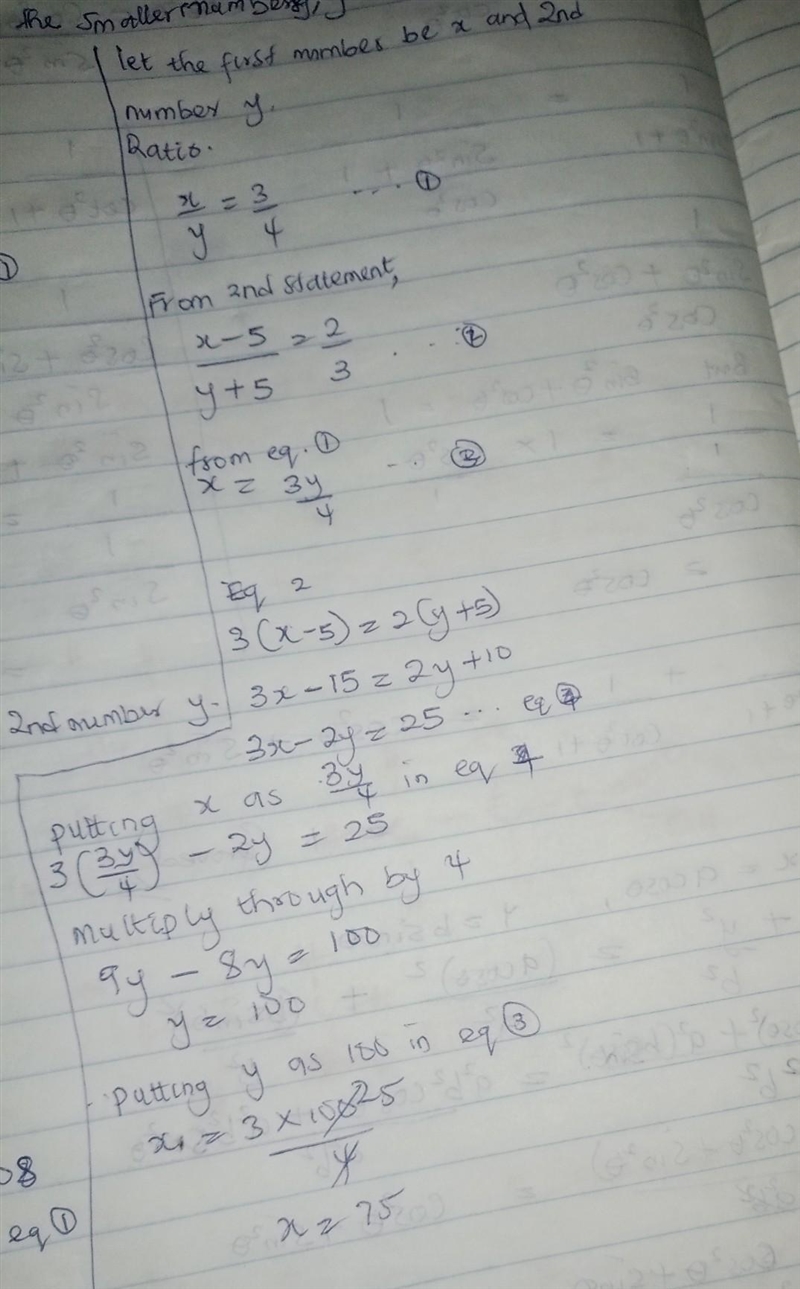 the smaller number
let the first number be x and 2nd
number y.
Ratio.
x/y = 3/4 .... ①
From 2nd statement,
x-5/y+5 = 2/3 . . . ②
from eq. ①
x = 3y/4 . . . ③
Eq 2
3(x-5) = 2(y+5)
3x-15 = 2y+10
3x-2y = 25 ... eq 4
2nd number y.
putting x as 3y/4 in eq 4
3(3y/4) - 2y = 25
multiply through by 4
9y - 8y = 100
y = 100
putting y as 100 in eq ③
x = 3 x 100 25/4
x = 75
08
eq ①